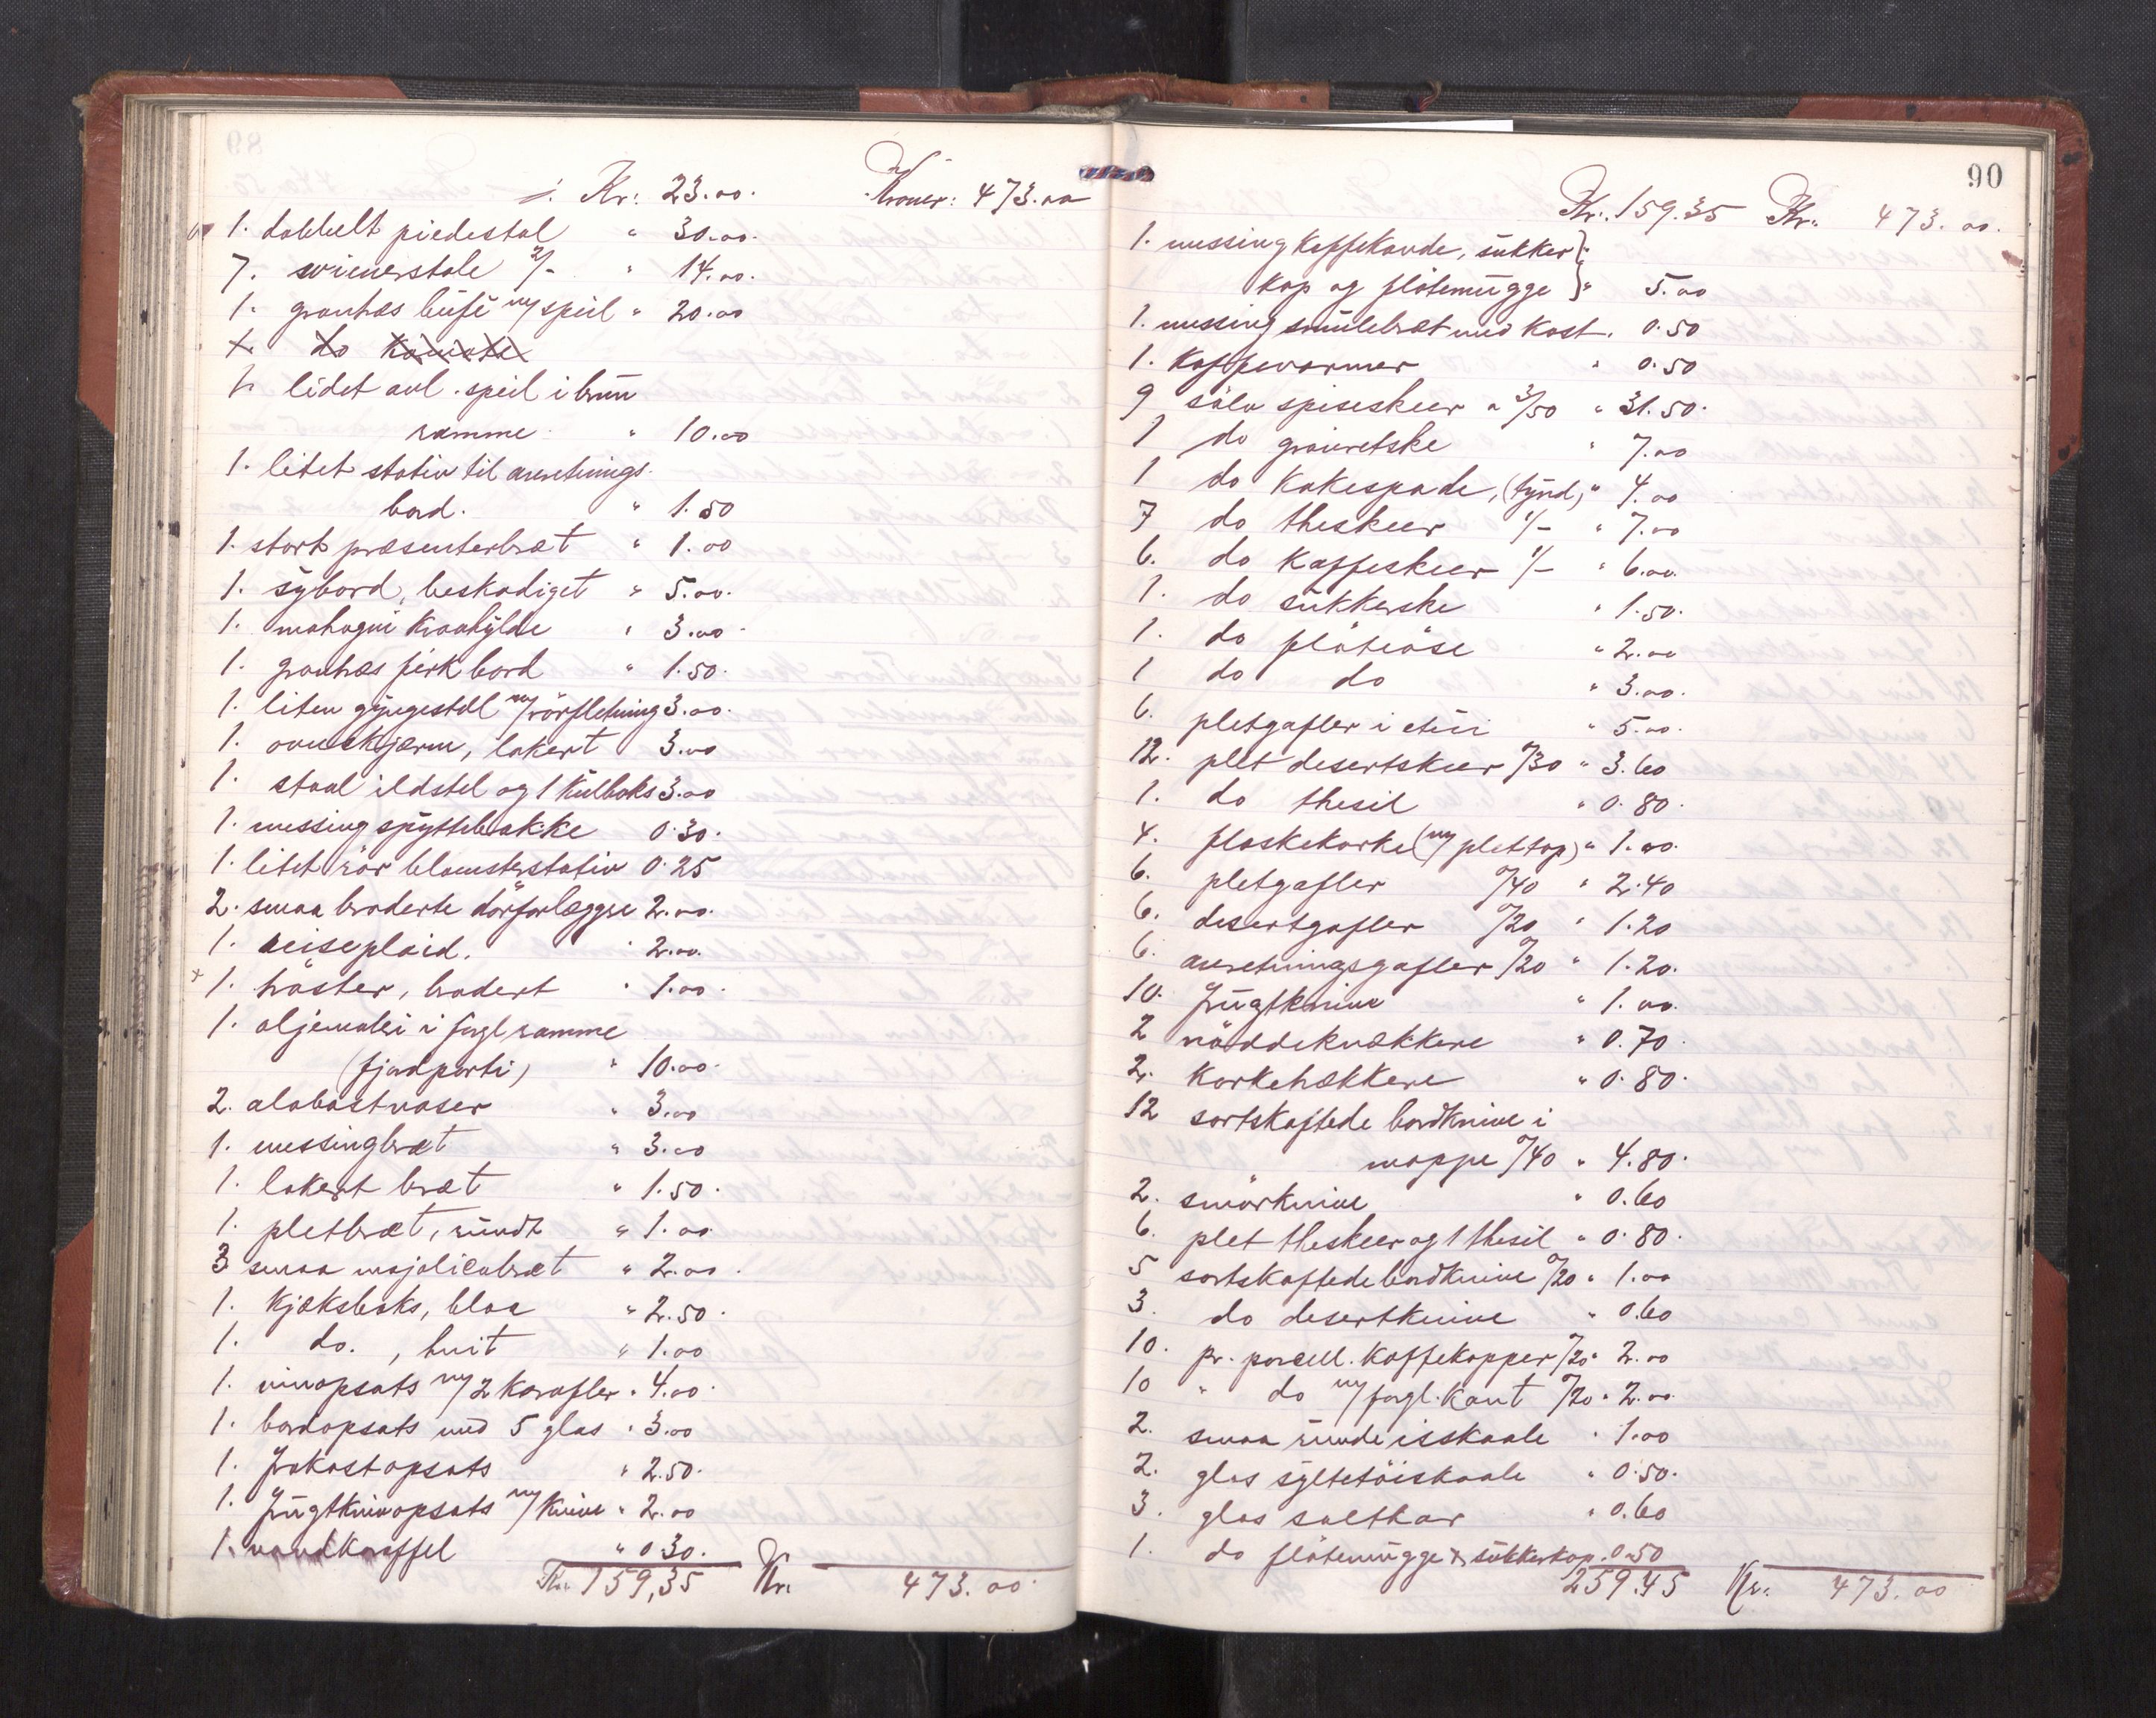 Kr: 23.00. Kroner: 473.00
1. dobbelt piedestal " 30.00.
7. wienerstole 2/- " 14.00.
1. granhæs büfé m/ speil " 20.00
1. do Komode
1. lidet avl. speil i brün
ramme " 10.00
1. litet stativ til anretnings-
bord. " 1.50
1. stort præsenterbræt " 1.00
1. sÿbord, beskadiget " 5.00.
1. mahogni Kraahÿlde " 3.00.
1. granhæs firk bord " 1.50.
1. liten gÿngestol m/ rörfletning 3.00.
1. ovnskjærm, lakert 3.00
1. staal ildstel og 1 Külboks 3.00
1. messing spÿttebakke 0.30.
1. litet rör blomsterstativ 0.25
2. smaa broderte dörforlæggere 2.00.
1. reiseplaid. " 2.00.
1. hröster, brodert " 1.00.
1. oljemaleri i forgl ramme
(fjordparti) " 10.00.
2. alabastvaser " 3.00
1. messingbræt " 3.00
1. lakert bræt " 1.50.
1. pletbræt,ründt " 1.00.
3 smaa majolicabræt " 2.00.
1. Kjæksboks, blaa " 2.50.
1. do. , hvit " 1.00
1. vinopsats m/ 2 Karafler " 4.00.
1. bordopsats med 5 glas " 3.00
1. Frokostopsats " 2.50.
1. Frügtknivopsats m/ Knive " 2.00
1. vandkaraffel " 0 30.
Kr. 159,35 Kr. 473.00.
90
Kr. 159.35 Kr. 473.00.
1. messing Kaffekande, sükker }
Kop og flötemügge } " 5.00
1. messing smülebræt med Kost. 0.50
1. Kaffevarmer " 0.50
9 sölv spiseskeer a 3/50 " 31.50.
1 do graüretske " 7.00
1 do Kakespade, (tÿnd) " 4.00
7 do theskeer 1/- " 7.00
6. do Kaffeskeer 1/- " 6.00.
1. do sükkerske " 1.50.
1. do flöteöse " 2.00
1 do do " 3.00.
6. pletgafler i etüi " 5.00.
12. plet desertskeer 0/30 " 3.60
1. do thesil " 0.80.
4. flaskekorke (m/ plettop) " 1.00.
6. pletgafler 0/40 " 2.40
6. desertgafler 0/20 " 1.20
6. anretningsgafler 0/20 " 1.20.
10. Frügtknive " 1.00.
2 nöddeknækkere " 0.70.
2. Korketrækkere " 0.80.
12 sortskaftede bordknive i
mappe 0/40 " 4.80.
2. smörknive " 0.60
6. plet theskeer og 1 thesil " 0.80.
5 sortskaftede bordknive 0/20 " 1.00
3. do desertknive " 0.60
10. pr. porcell. Kaffekopper 0/20 " 2.00
10 " do m/ forgl. Kant 0/20 " 2.00.
2. smaa ründe isskaale " 1.00
2. glas sÿltetöiskaale " 0.50.
3. glas saltkar " 0.60
1. do flötemügge & sükkerkop. 0.50
259.45 Kr. 473.00